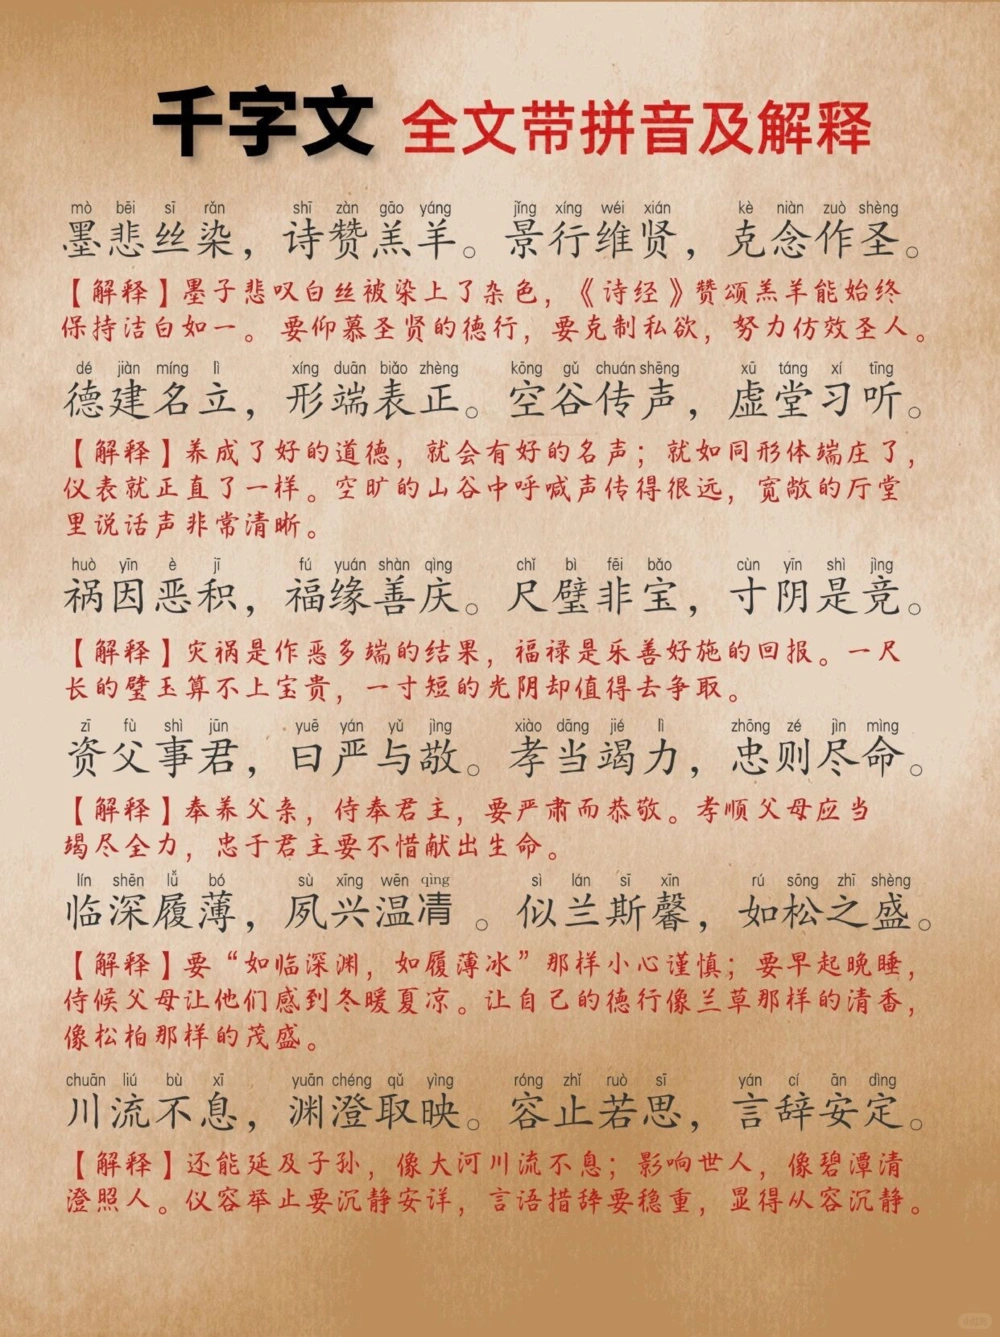 千字文 全文带拼音及解释
mò bēi sī rǎn shī zàn gāo yáng jǐng xíng wéi xián kè niàn zuò shèng
墨悲丝染，诗赞羔羊。景行维贤，克念作圣。
【解释】墨子悲叹白丝被染上了杂色，《诗经》赞颂羔羊能始终
保持洁白如一。 要仰慕圣贤的德行，要克制私欲，努力仿效圣人。
dé jiàn míng lì xíng duān biǎo zhèng kōng gǔ chuán shēng xū táng xí tīng
德建名立，形端表正。空谷传声，虚堂习听。
【解释】养成了好的道德，就会有好的名声；就如同形体端庄了，
仪表就正直了一样。空旷的山谷中呼喊声传得很远，宽敞的厅堂
里说话声非常清晰。
huò yīn è jī fú yuán shàn qìng chǐ bì fēi bǎo cùn yīn shì jìng
祸因恶积，福缘善庆。尺璧非宝，寸阴是竞。
【解释】灾祸是作恶多端的结果，福禄是乐善好施的回报。一尺
长的璧玉算不上宝贵，一寸短的光阴却值得去争取。
zī fù shì jūn yuē yán yǔ jìng xiào dāng jié lì zhōng zé jìn mìng
资父事君，曰严与敬。孝当竭力，忠则尽命。
【解释】奉养父亲，侍奉君主，要严肃而恭敬。孝顺父母应当
竭尽全力，忠于君主要不惜献出生命。
lín shēn lǚ bó sù xīng wēn qìng sì lán sī xīn rú sōng zhī shèng
临深履薄，夙兴温凊 。似兰斯馨，如松之盛。
【解释】要“如临深渊，如履薄冰”那样小心谨慎；要早起晚睡，
侍候父母让他们感到冬暖夏凉。让自己的德行像兰草那样的清香，
像松柏那样的茂盛。
chuān liú bù xī yuān chéng qǔ yìng róng zhǐ ruò sī yán cí ān dìng
川流不息，渊澄取映。容止若思，言辞安定。
【解释】还能延及子孙，像大河川流不息；影响世人，像碧潭清
澄照人。仪容举止要沉静安详，言语措辞要稳重，显得从容沉静。